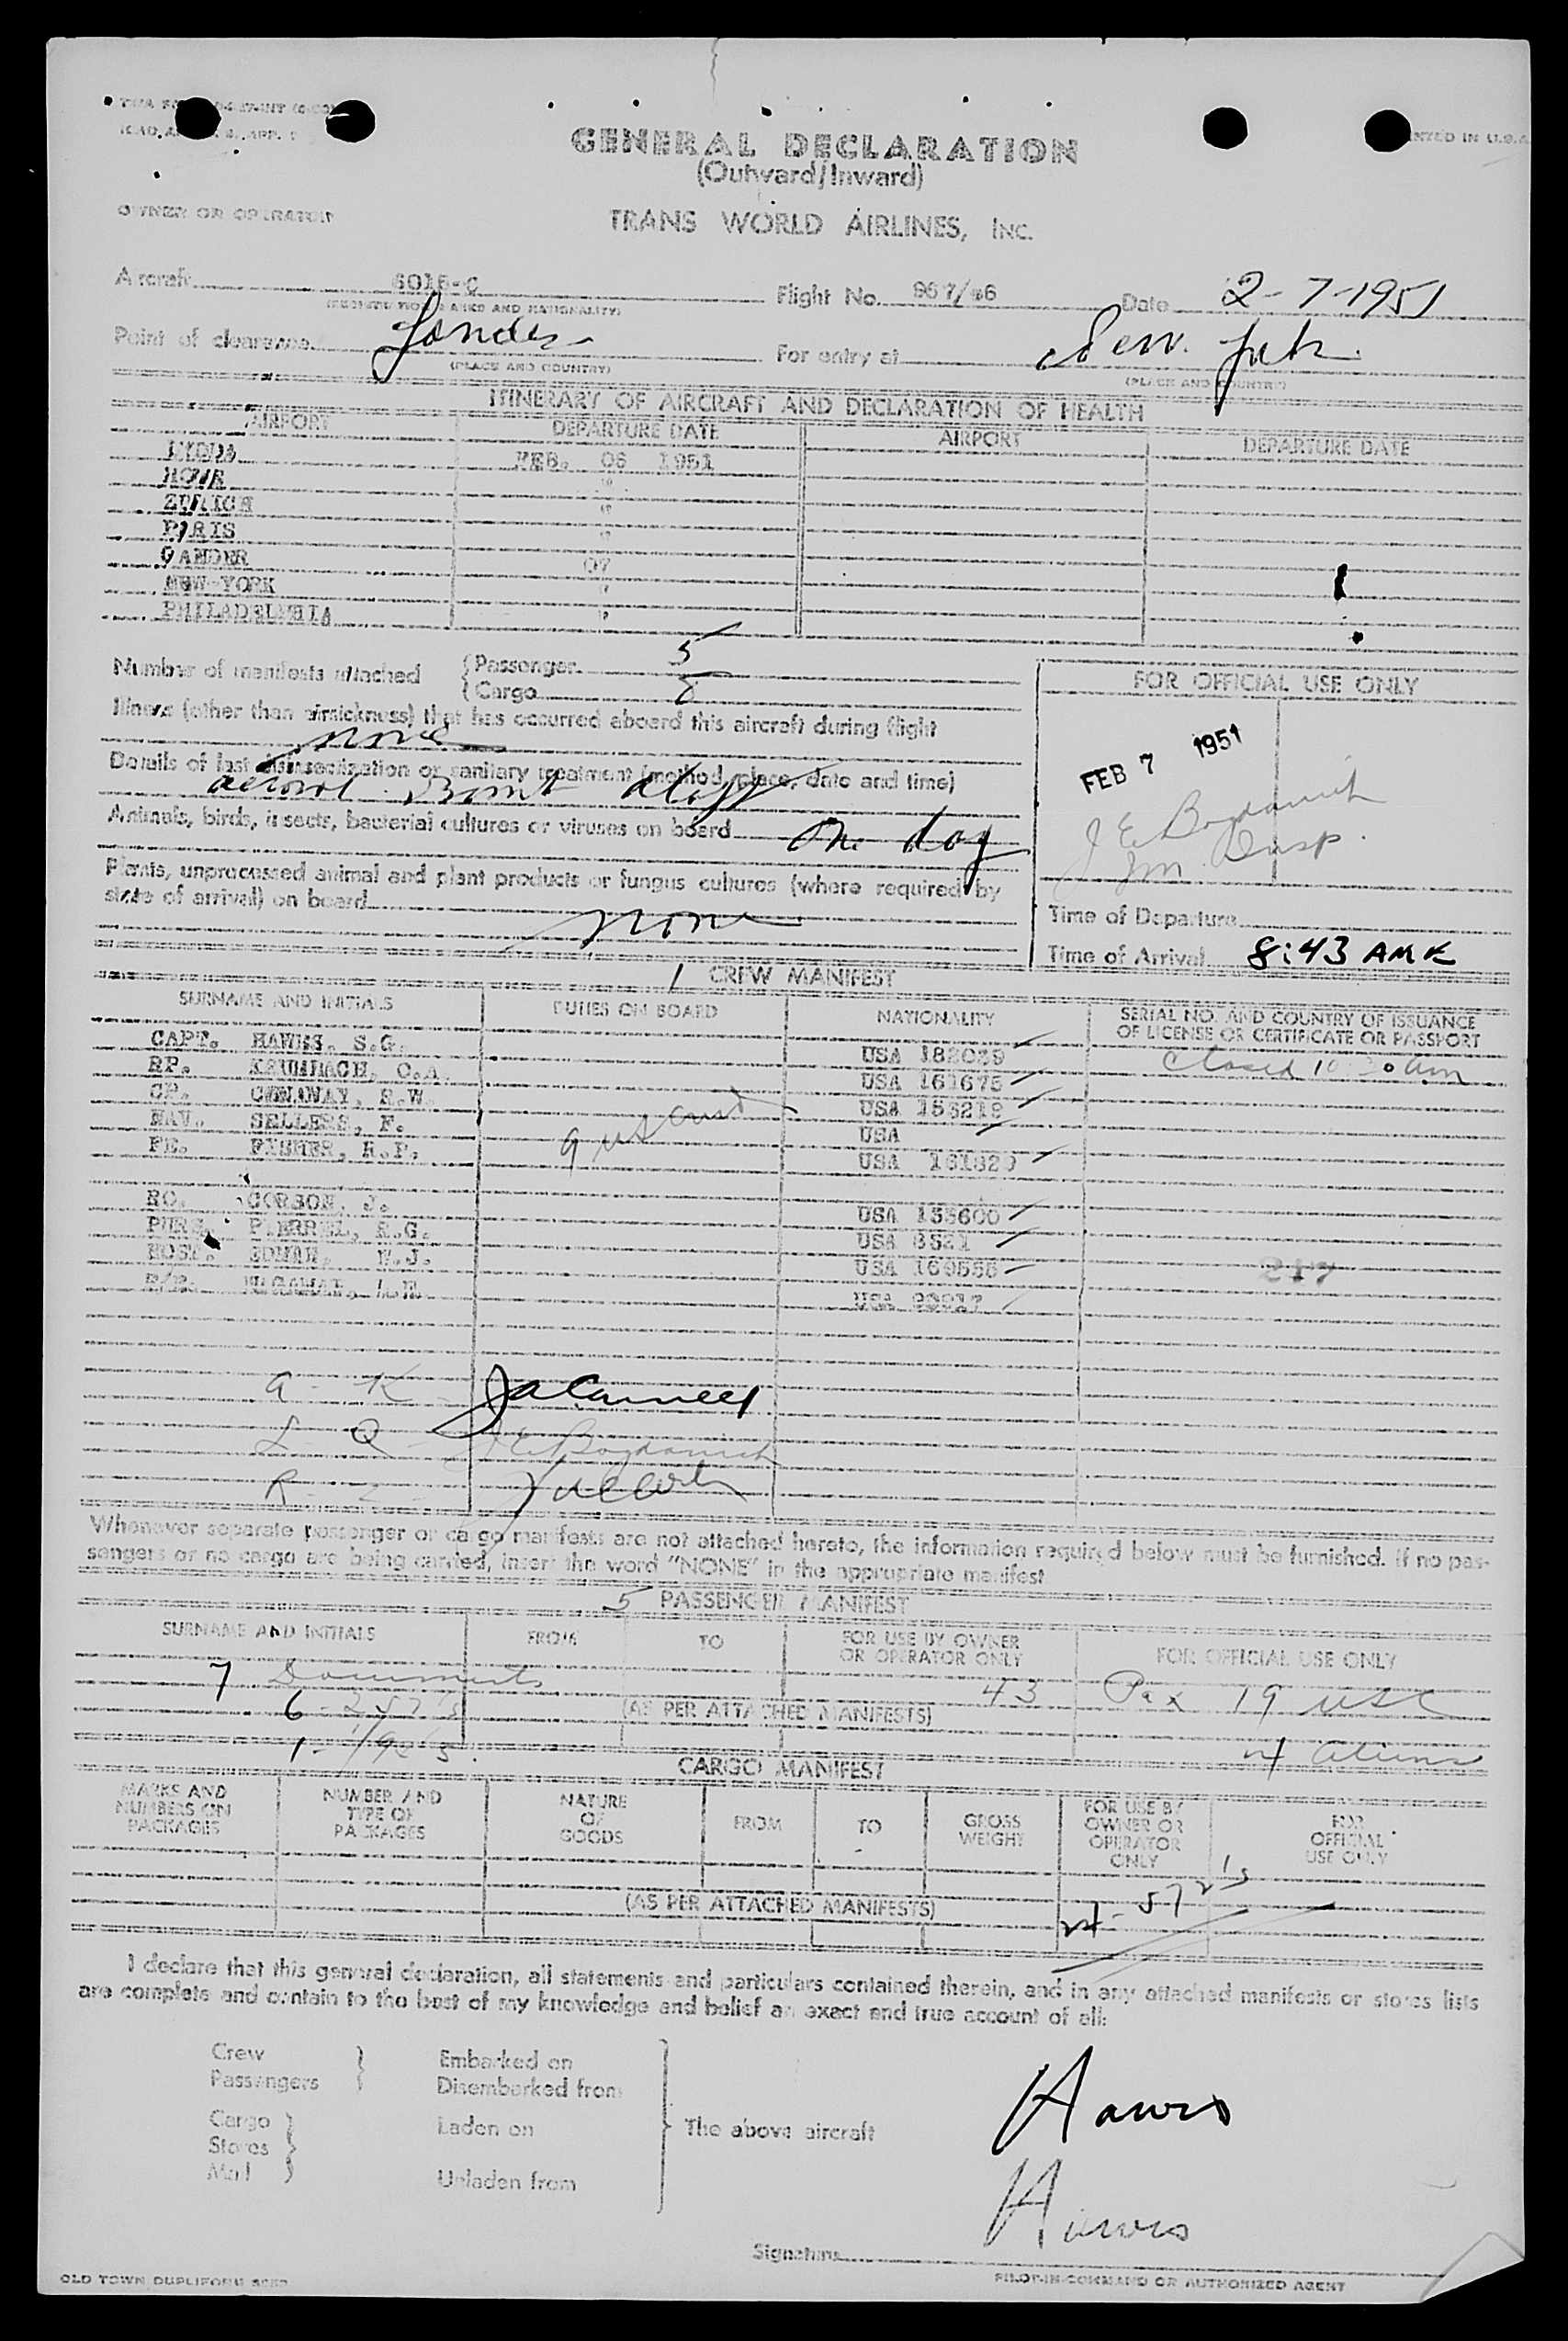 GENERAL DECLARATION
(Outward/Inward)
OWNER OR OPERATOR
TRANS WORLD AIRLINES, INC.
Aircraft 6015-C Flight No. 967/ Date 2-7-1951
Point of clearance For entry at New York
(PLACE AND COUNTRY) (PLACE AND COUNTRY)
ITINERARY OF AIRCRAFT AND DECLARATION OF HEALTH
AIRPORT DEPARTURE DATE AIRPORT DEPARTURE DATE
LYDDA FEB. 06 1951
ROME "
ZURICH "
PARIS "
GANDER 07
NEW YORK "
PHILADELPHIA "
Number of manifests attached { Passenger 5
{ Cargo
Illness (other than airsickness) that has occurred aboard this aircraft during flight
none
Details of last disinsectization or sanitary treatment (method, place, date and time)
aerosol Bomb
Animals, birds, insects, bacterial cultures or viruses on board One dog
Plants, unprocessed animal and plant products or fungus cultures (where required by
state of arrival) on board
none
FOR OFFICIAL USE ONLY
FEB 7 1951
J E Bogdanich
Im Insp.
Time of Departure
Time of Arrival 8:43 AM K
1 CREW MANIFEST
SURNAME AND INITIALS DUTIES ON BOARD NATIONALITY SERIAL NO. AND COUNTRY OF ISSUANCE
OF LICENSE OR CERTIFICATE OR PASSPORT
CAPT. HAWES, S.G. USA 182039 Closed 10:30 am
RP. KRUMBACH, C.A. USA 161675
CP. CONAWAY, R.W. USA 153219
NAV. SELLERS, F. 9 USC USA
FE. FISHER, R.P. USA 181820
RO. CORSON, J. USA 153600
PURS. R.G. USA 3521
HOST. J. USA 160555
USA 217
A - K
L - Q J E Bogdanich
R -
Whenever separate passenger or cargo manifests are not attached hereto, the information required below must be furnished. If no pas-
sengers or no cargo are being carried, insert the word "NONE" in the appropriate manifest
5 PASSENGER MANIFEST
SURNAME AND INITIALS FROM TO FOR USE BY OWNER
OR OPERATOR ONLY FOR OFFICIAL USE ONLY
7 Documents 43 Pax 19 USC
6 - 257's (AS PER ATTACHED MANIFESTS)
24 Aliens
CARGO MANIFEST
MARKS AND
NUMBERS ON
PACKAGES
NUMBER AND
TYPE OF
PACKAGES
NATURE
OF
GOODS
FROM
TO
GROSS
WEIGHT
FOR USE BY
OWNER OR
OPERATOR
ONLY
FOR
OFFICIAL
USE ONLY
(AS PER ATTACHED MANIFESTS)
I declare that this general declaration, all statements and particulars contained therein, and in any attached manifests or stores lists
are complete and contain to the best of my knowledge and belief an exact and true account of all:
Crew } Embarked on
Passengers } Disembarked from
Cargo } Laden on The above aircraft
Stores }
Mail } Unladen from
Hawes
Hawes
Signature
PILOT-IN-COMMAND OR AUTHORIZED AGENT
OLD TOWN DUPLIFORM